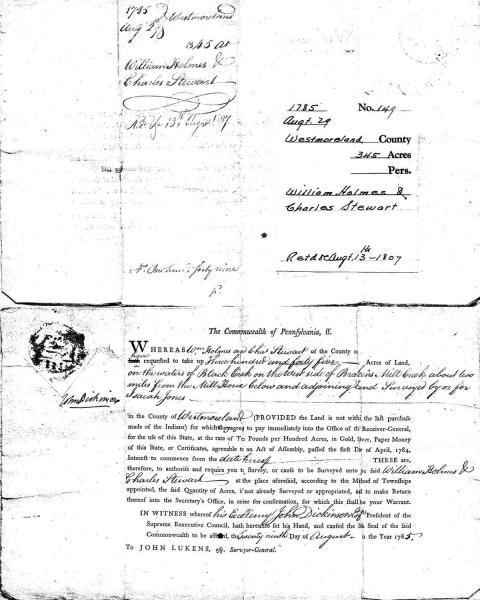 1785 Westmoreland
Aug 29
345 as
William Holmes &
Charles Stewart
13th August 1807
1785 No. 149
Augt. 29
Westmoreland County
345 Acres
Pers.
William Holmes &
Charles Stewart
Retd &c Augt. 13th - 1807
N. One hund. forty nine
The Commonwealth of Pennsylvania, ss.
WHEREAS Wm Holmes and Chas Stewart of the County o
have requested to take up three hundred and forty five Acres of Land,
on the waters of Black Creek on the West side of Mill Creek about two
miles from the Mill House below and adjoining land Surveyed by or for
Isaiah Jones
Wm Dickinson
in the County of Westmoreland (PROVIDED the Land is not with the last purchase
made of the Indians) for which they agree to pay immediately into the Office of the Receiver-General,
for the use of this State, at the rate of Ten Pounds per Hundred Acres, in Gold, Silver, Paper Money
of this State, or Certificates, agreeable to an Act of Assembly, passed the first Day of April, 1784.
Interest to commence from the date hereof THESE are,
therefore, to authorise and require you to Survey, or cause to be Surveyed unto the said William Holmes &
Charles Stewart at the place aforesaid, according to the Method of Townships
appointed, the said Quantity of Acres, if not already Surveyed or appropriated, and to make Return
thereof into the Secretary's Office, in order for confirmation, for which this shall be your Warrant.
IN WITNESS whereof his Excellency John Dickinson Esqr President of the
Supreme Executive Council, hath hereunto set his Hand, and caused the less Seal of the said
Commonwealth to be affixed, the twenty ninth Day of August in the Year 1785
To JOHN LUKENS, Esq. Surveyor-General.